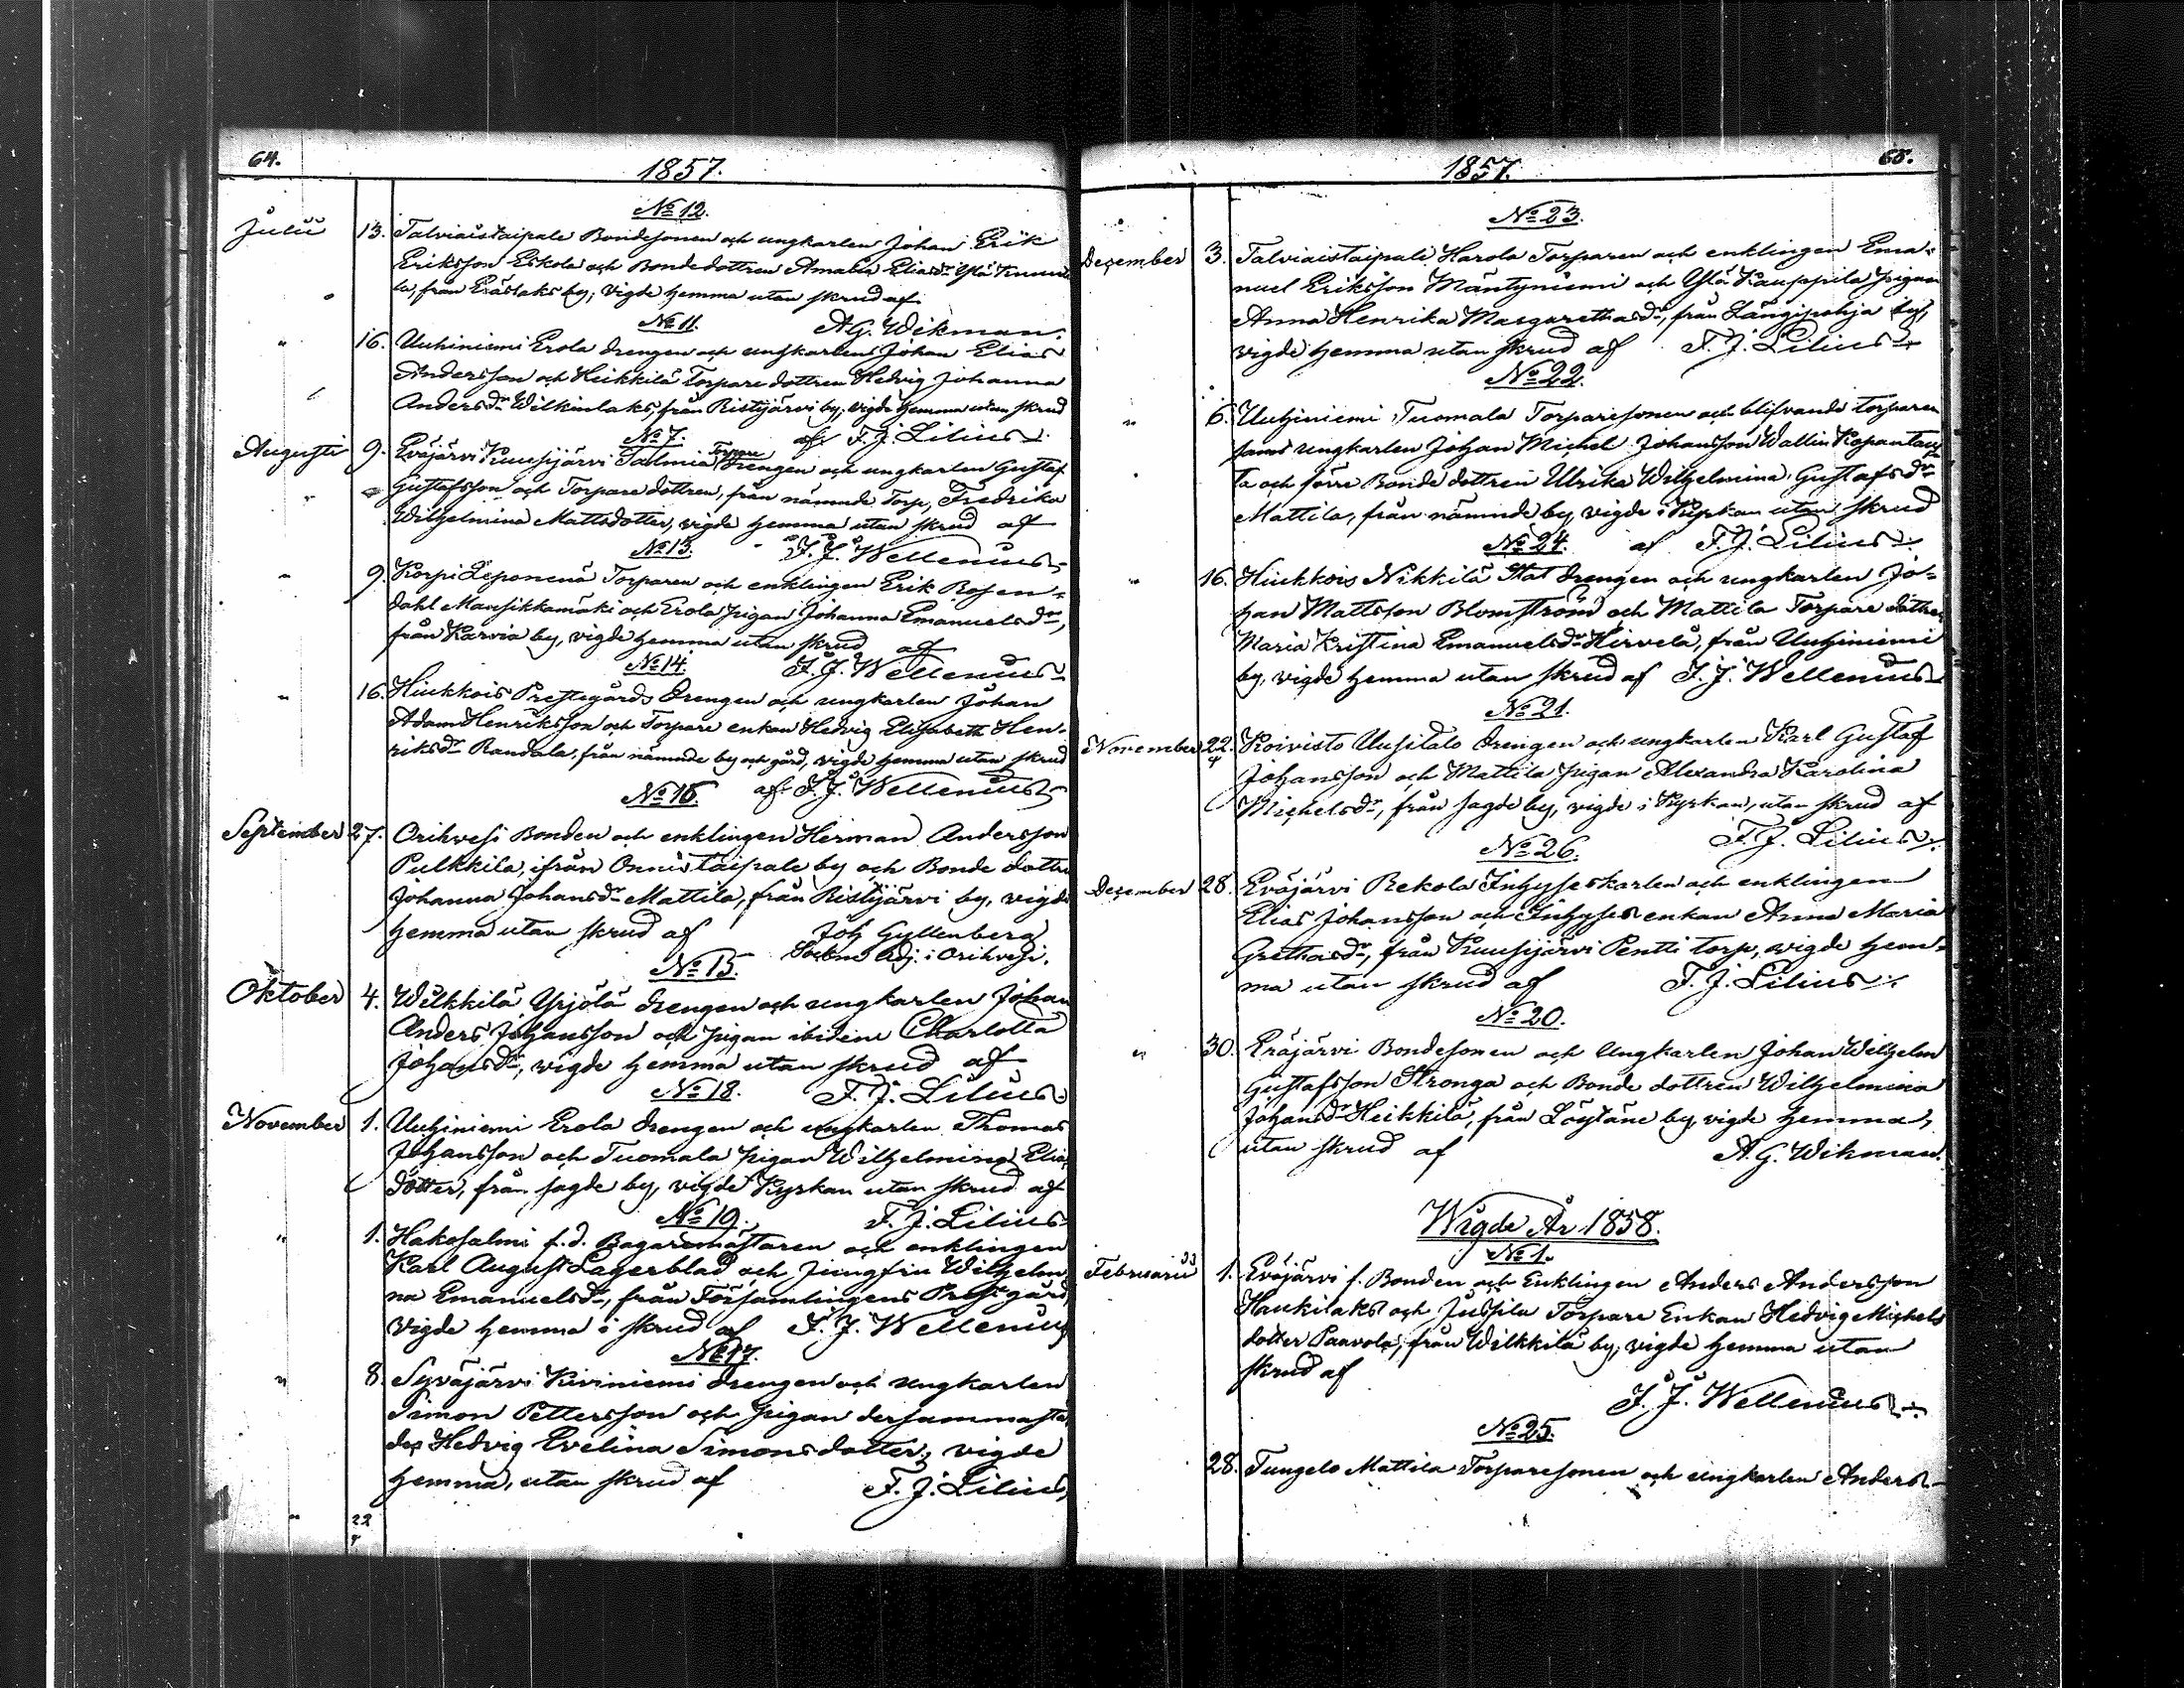 64.
1857.
No 12.
Julii 13. Talviaistaipale Bondesonen och ungkarlen Johan Erik
Eriksson Eskola och Bondedottren Amalia Eliasdr Ylä Knuut
la, från Eräslaks by, vigde hemma utan skrud af
A. G. Wikman.
No 11.
" 16. Uuhiniemi Erola drengen och ungkarlen Johan Elias
Andersson och Heikkilä Torpare dottren Hedvig Johanna
Andersdr Wilkinlaks, från Ristijärvi by, vigde hemma utan skrud
af F. J. Lilius.
No 7.
Augusti 9. Eräjärvi Kuusijärvi Talmia Torpare drengen och ungkarlen Gustaf
Gustafsson och Torpare dottren, från nämnde Torp, Fredrika
Wilhelmina Mattsdotter, vigde hemma utan skrud af
F. J. Wellenius
No 13.
" 9. Korpi Leponenä Torparen och enklingen Erik Rosen-
dahl Mansikkamäki och Erola pigan Johanna Emanuelsdr,
från Karvia by, vigde hemma utan skrud af
F. J. Wellenius
No 14.
" 16. Hiukkois Prestegårds drengen och ungkarlen Johan
Adam Henriksson och Torpare enkan Hedvig Elisabeth Hen-
riksdr Randala, från nämnde by och gård, vigde hemma utan skrud
af F. J. Wellenius
No 16.
September 27. Orihvesi Bonden och enklingen Herman Andersson
Pulkkila, ifrån Onnistaipale by och Bonde dottre
Johanna Johansdr Mattila, från Ristijärvi by, vigde
hemma utan skrud af Joh Gyllenberg
Sockne Adj. i Orihvesi.
No 15.
Oktober 4. Wilkkilä Yrjölä drengen och ungkarlen Johan
Anders Johansson och pigan ibidem Charlotta
Johansdr, vigde hemma utan skrud af
F. J. Lilius.
No 18.
November 1. Uuhiniemi Erola drengen och ungkarlen Thomas
Johansson och Tuomala pigan Wilhelmina Elias
dotter, från sagde by, vigde Kyrkan utan skrud af
F. J. Lilius
No 19.
" 1. Hakosalmi f. d. Bagaremästaren och enklingen
Karl August Lagerblad och Jungfru Wilhelmi
na Emanuelsdr, från Församlingens Prestgård,
vigde hemma i skrud af F. J. Wellenius
No 17.
" 8. Syväjärvi Kiviniemi drengen och ungkarlen
Simon Pettersson och pigan dersammastä
des Hedvig Evelina Simonsdotter, vigde
hemma, utan skrud af F. J. Lilius
" 22
65.
1857.
No 23.
December 3. Talviaistaipale Harola Torparen och enklingen Ema-
nuel Eriksson Mäntyniemi och Ylä Kauppila pigan
Anna Henrika Margarethasdr, från Längipohja by,
vigde hemma utan skrud af F. J. Lilius
No 22.
" 6. Uuhiniemi Tuomala Torparesonen och blifvande torparen
samt ungkarlen Johan Michel Johansson Wallin Kopantaus
ta och förre Bonde dottren Ulrika Wilhelmina Gustafsdr
Mattila, från nämnde by, vigde i Kyrkan utan skrud
af F. J. Lilius
No 24.
" 16. Hiukkois Nikkilä Stat drengen och ungkarlen Jo-
han Mattsson Blomström och Mattila Torpare dottren
Maria Kristina Emanuelsdr Hirvelä, från Uuhiniemi
by, vigde hemma utan skrud af F. J. Wellenius
No 21.
November 22. Koivisto Uusitalo drengen och ungkarlen Karl Gustaf
Johansson och Mattila pigan Alexandra Karolina
Michelsdr, från sagde by, vigde i Kyrkan, utan skrud af
F. J. Lilius
No 26.
December 28. Eväjärvi Rekola Inhyseskarlen och enklingen
Elias Johansson och Inhyses enkan Anna Maria
Grethasdr, från Kuusijärvi Pentti torp, vigde hem-
ma utan skrud af F. J. Lilius
No 20.
" 30. Eräjärvi Bondesonen och Ungkarlen Johan Wilhelm
Gustafsson Stronga och Bonde dottren Wilhelmina
Johansdr Heikkilä, från Löytäne by, vigde hemma,
utan skrud af A. G. Wikman.
Wigde År 1858.
No 1.
Februarii 1. Eväjärvi f. Bonden och Enklingen Anders Andersson
Haukilaks och Jussila Torpare Enkan Hedvig Michels
dotter Paavola, från Wilkkilä by, vigde hemma utan
skrud af
F. J. Wellenius
No 25.
28. Tungelo Mattila Torparesonen och ungkarlen Anders